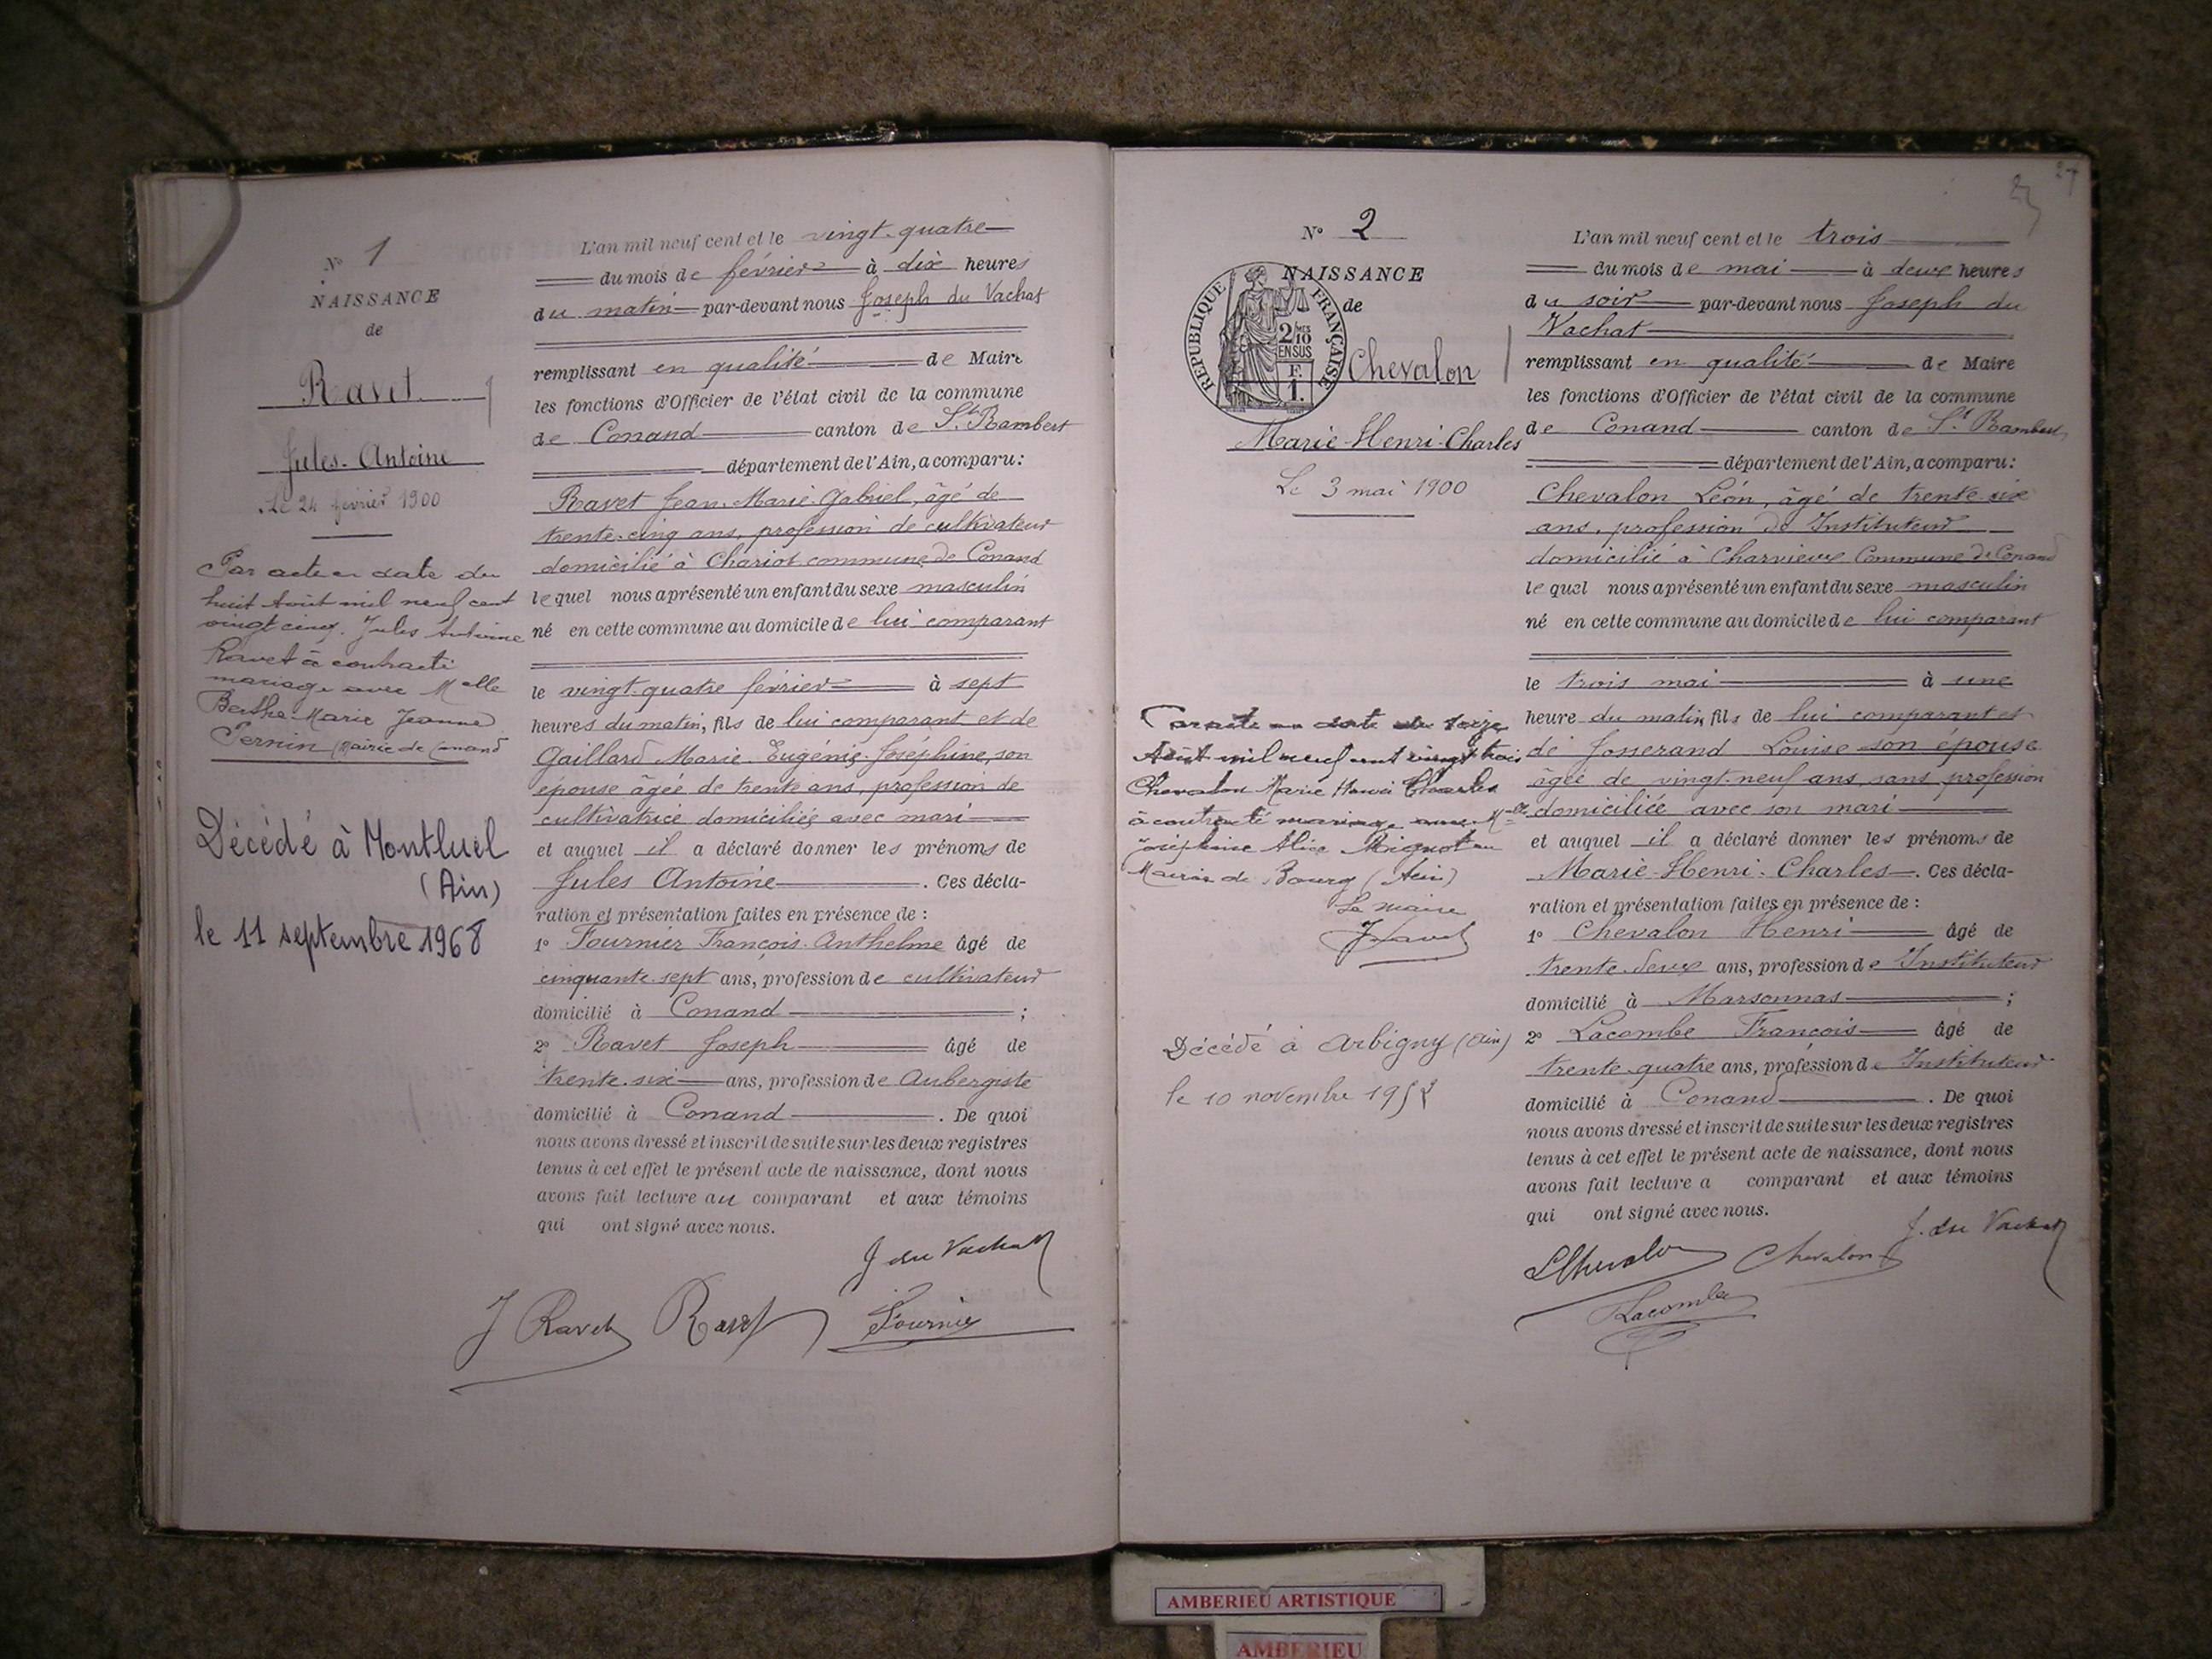 N° 1
NAISSANCE
de
Ravet
Jules-Antoine
Le 24 février 1900
Par acte en date du
huit Août mil neuf cent
vingt cinq. Jules Antoine
Ravet à contracté
mariage avec Melle
Berthe Marie Jeanne
Pernin (Mairie de Conand
Décédé à Montluel
(Ain)
le 11 septembre 1968
L'an mil neuf cent et le vingt-quatre
du mois de février à dix heures
du matin par-devant nous Joseph du Vachat
remplissant en qualité de Maire
les fonctions d'Officier de l'état civil de la commune
de Conand canton de St. Rambert
département de l'Ain, a comparu:
Ravet Jean-Marie Gabriel, âgé de
trente-cinq ans, profession de cultivateur
domicilié à Chariot commune de Conand
lequel nous a présenté un enfant du sexe masculin
né en cette commune au domicile de lui comparant
le vingt-quatre février à sept
heures du matin, fils de lui comparant et de
Gaillard Marie-Eugénie-Joséphine, son
épouse âgée de trente ans, profession de
cultivatrice domiciliée avec mari
et auquel il a déclaré donner les prénoms de
Jules Antoine. Ces décla-
ration et présentation faites en présence de :
1° Fournier François-Anthelme âgé de
cinquante-sept ans, profession de cultivateur
domicilié à Conand ;
2° Ravet Joseph âgé de
trente-six ans, profession de Aubergiste
domicilié à Conand. De quoi
nous avons dressé et inscrit de suite sur les deux registres
tenus à cet effet le présent acte de naissance, dont nous
avons fait lecture au comparant et aux témoins
qui ont signé avec nous.
J du Vachat
J Ravet Ravet Fournier
27
N° 2
NAISSANCE
de
REPUBLIQUE FRANÇAISE
2/10 MES
EN SUS
F.
1.
Chevalon
Marie-Henri-Charles
Le 3 mai 1900
Par acte en date du seize
Août mil neuf cent vingt trois
Chevalon Marie Henri Charles
à contracté mariage avec Melle
Joséphine Alice Mignot au
Mairie de Bourg (Ain)
Le maire
Décédé à Arbigny (Ain)
le 10 novembre 1952
L'an mil neuf cent et le trois
du mois de mai à deux heures
du soir par-devant nous Joseph du
Vachat
remplissant en qualité de Maire
les fonctions d'Officier de l'état civil de la commune
de Conand canton de St. Rambert
département de l'Ain, a comparu:
Chevalon Léon, âgé de trente-six
ans, profession de Instituteur
domicilié à Charvieux Commune de Conand
lequel nous a présenté un enfant du sexe masculin
né en cette commune au domicile de lui comparant
le trois mai à une
heure du matin, fils de lui comparant et
de Jonerand Louise son épouse
âgée de vingt-neuf ans, sans profession
domiciliée avec son mari
et auquel il a déclaré donner les prénoms de
Marie-Henri-Charles. Ces décla-
ration et présentation faites en présence de :
1° Chevalon Henri âgé de
trente-deux ans, profession de Instituteur
domicilié à Marsonnas ;
2° Lacombe François âgé de
trente-quatre ans, profession de Instituteur
domicilié à Conand. De quoi
nous avons dressé et inscrit de suite sur les deux registres
tenus à cet effet le présent acte de naissance, dont nous
avons fait lecture a comparant et aux témoins
qui ont signé avec nous.
J. du Vachat
LChevalon Chevalon
Lacombe
AMBERIEU ARTISTIQUE
AMBERIEU